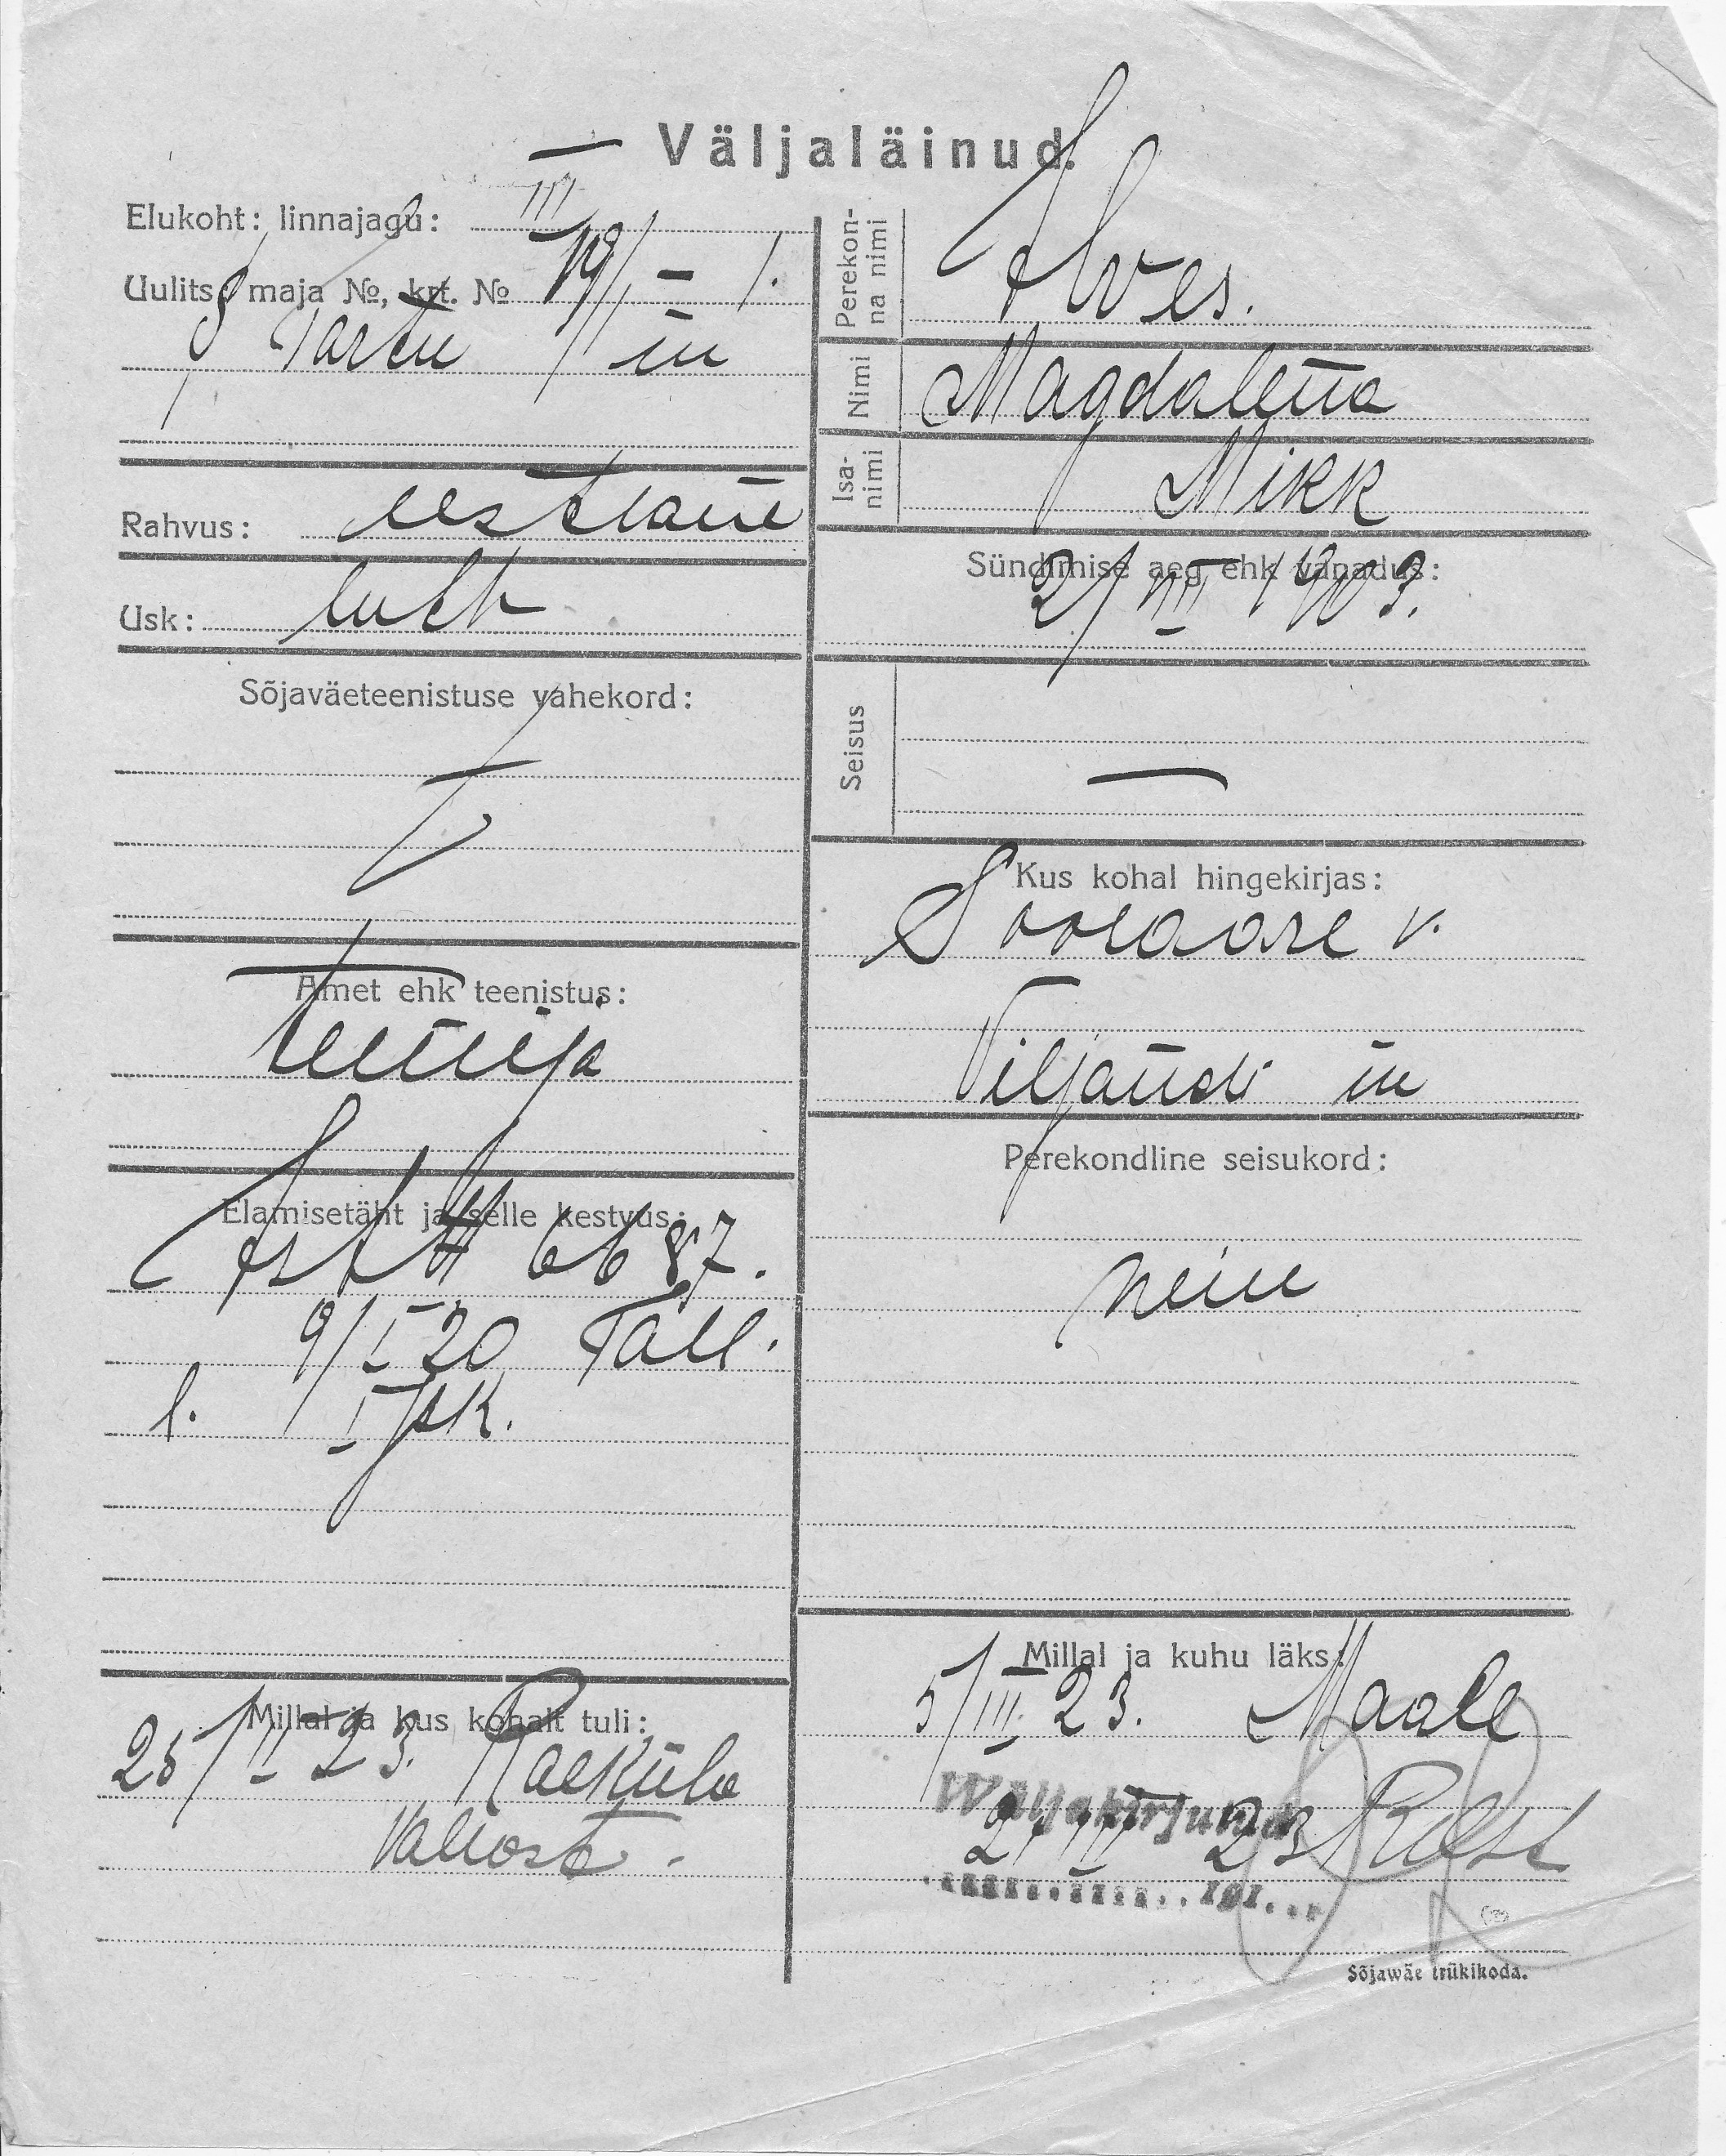 Väljaläinud.
Elukoht: linnajagu: III
Uulits, maja №, krt. № 19/1 - 1.
S Tartu m
Rahvus: eestlane
Usk: luth
Sõjaväeteenistuse vahekord:
—
Amet ehk teenistus:
teenija
Elamisetäht ja selle kestvus:
6687.
9/I 20 Tall.
l. I jsk.
Millal ja kus kohalt tuli:
26/II 23. Raeküla
vallast.
Perekon-
na nimi
Ilves.
Nimi Magdalena
Isa-
nimi
Mikk
Sündimise aeg ehk vanadus:
2/VII 1903.
Seisus —
Kus kohal hingekirjas:
Soosaare v.
Viljandi m
Perekondline seisukord:
neiu
Millal ja kuhu läks:
5/III 23. Maale
Wäljakirjutud
2/III 23
191
Sõjawäe trükikoda.